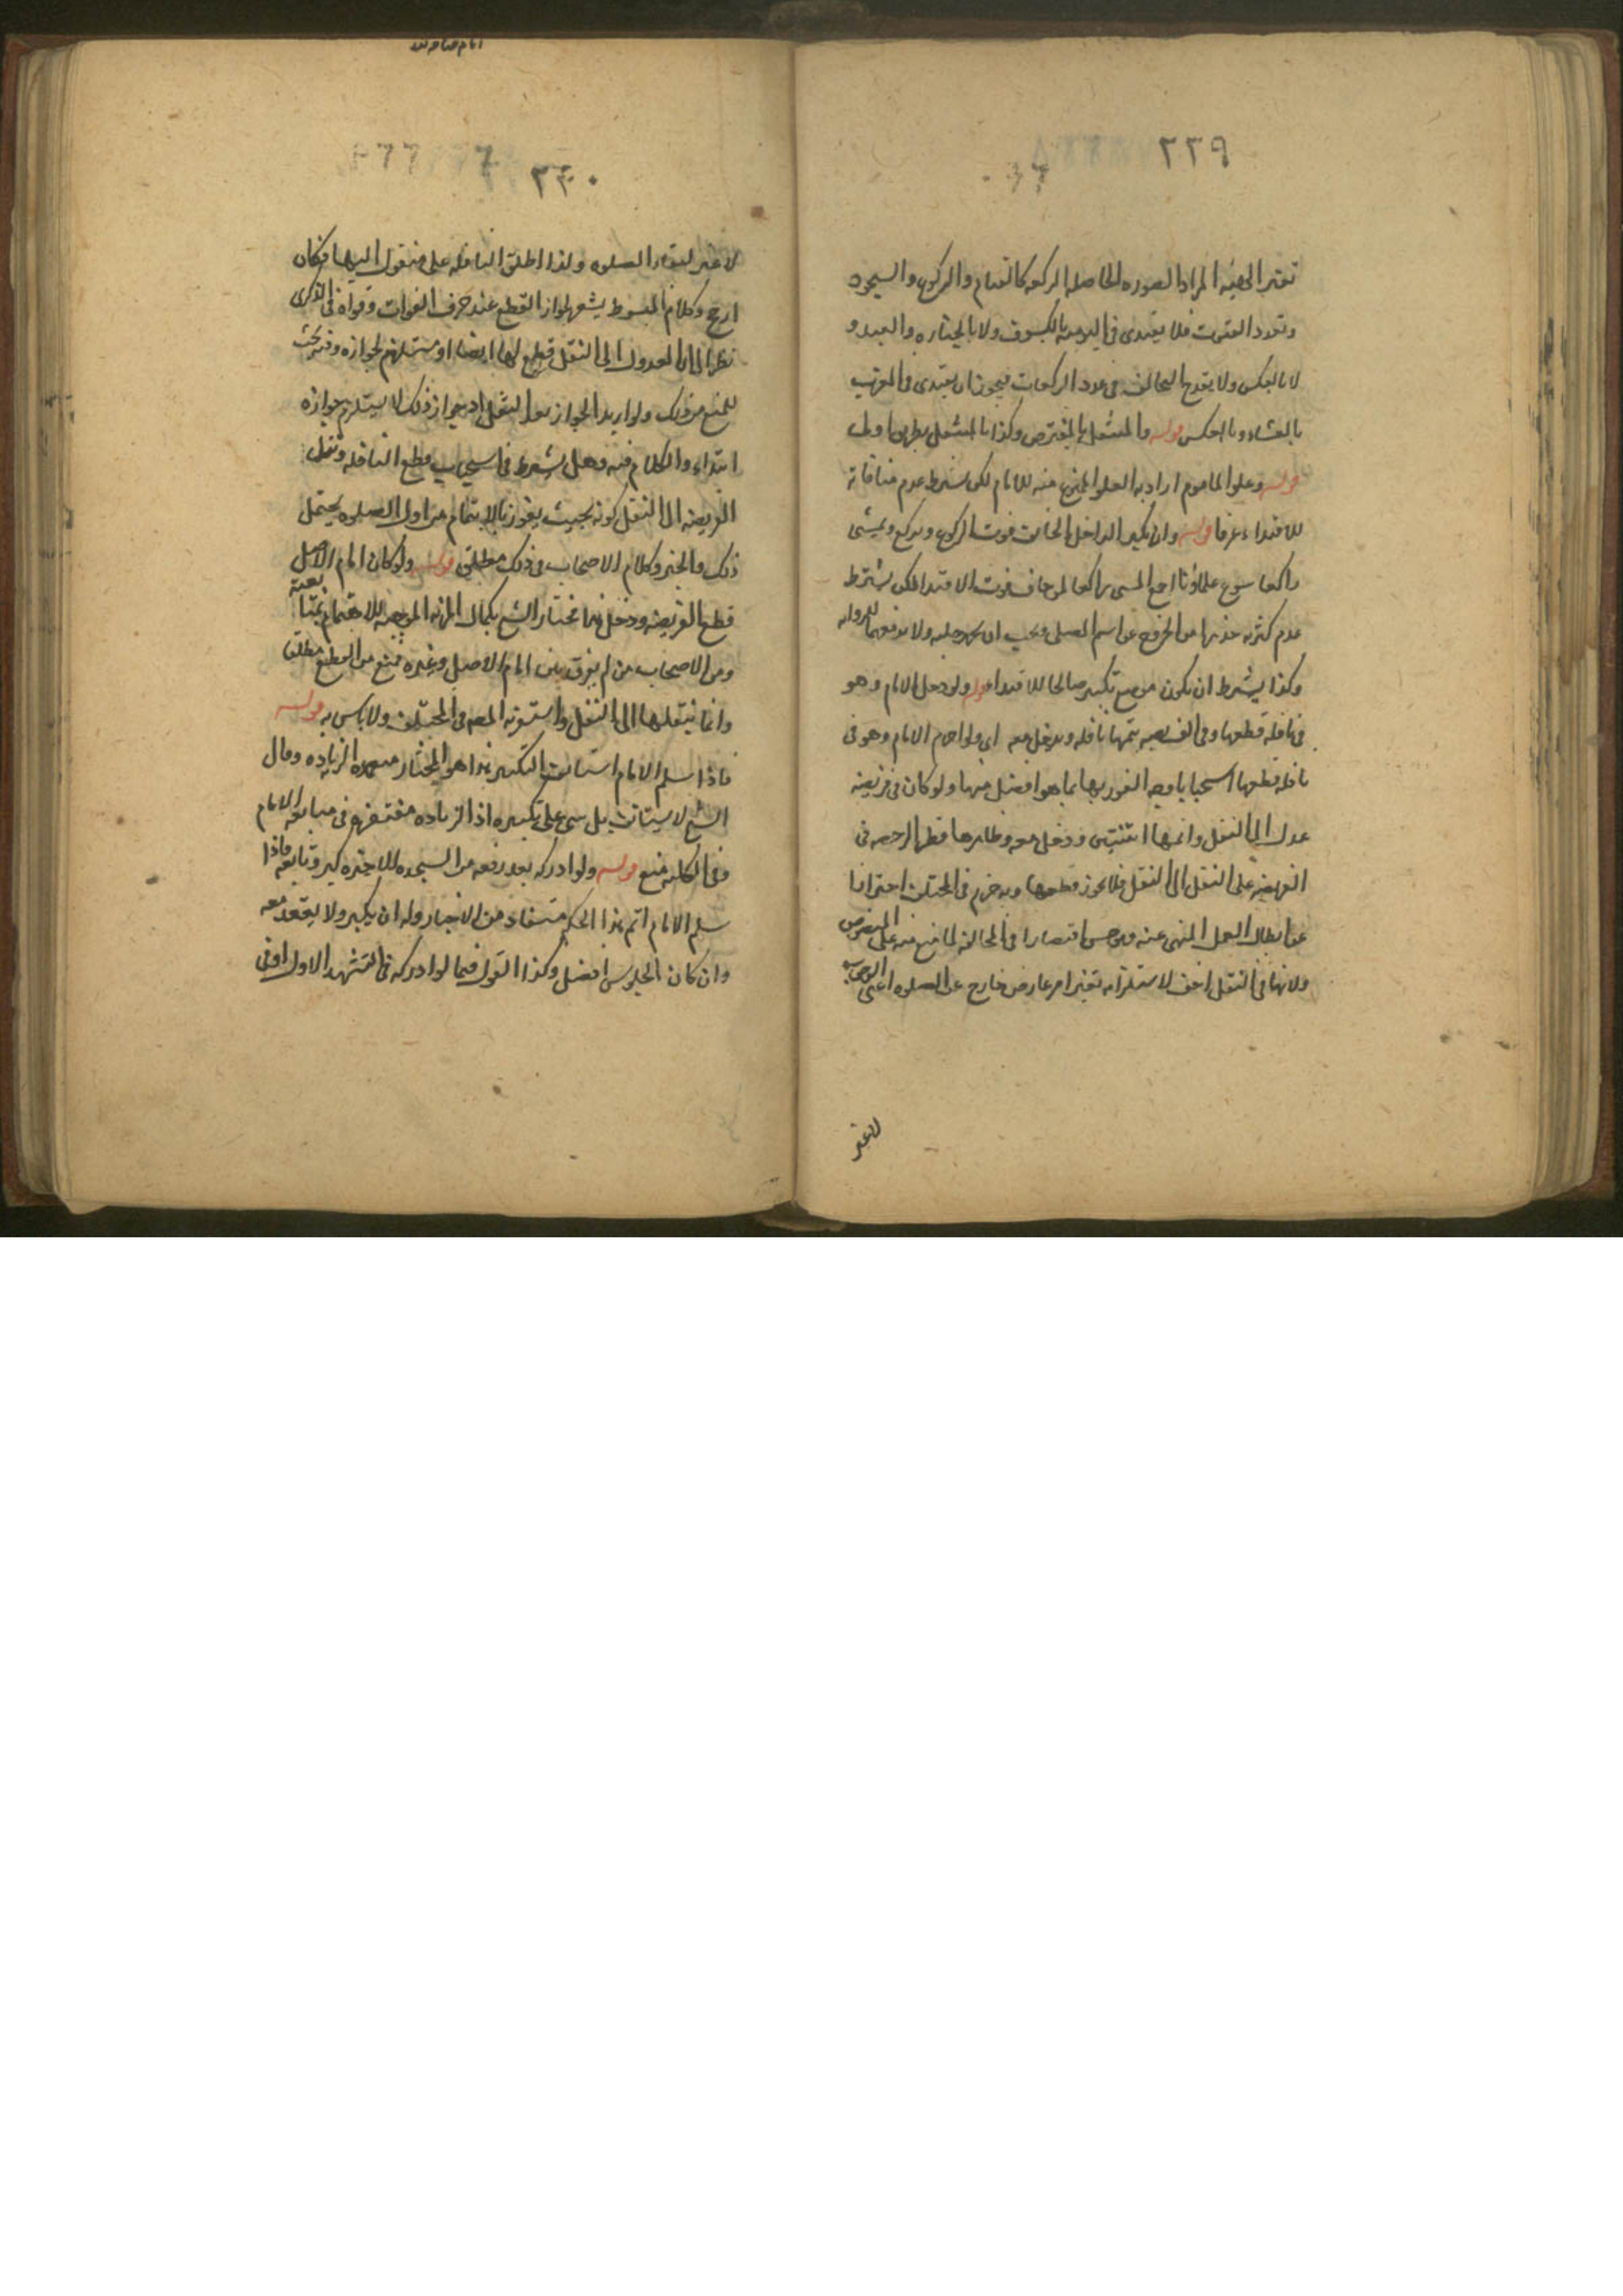 ٢٢٩
تغير الهيئه المراد الصوره الحاصله الركعه كالقيام والركوع والسجود
وتعدد القنوت فلا يقتدى فى اليوميه بالكسوف ولا بالجنازه والعيد و
لا بالعكس ولا يقدح التخالف فى عدد الركعات فيجوز ان يقتدى فى المغرب
بالعشاء وبالعكس قوله والمتنفل بالمفترض وكذا بالمتنفل
قوله وعلو الماموم اراد به العلو الممنوع منه للامام لكن بشرط عدم منافاته
للاقتداء عرفا قوله وان يكبر الداخل الخائف فوت الركوع ويركع ويمشى
راكعا سوغ علماؤنا اجمع المشى راكعا لمن خاف فوت الاقتدا لكن يشترط
عدم كثرته حذرا من الخروج عن اسم المصلى ويجب ان يجر رجليه ولا يرفعهما للروايه
وكذا يشترط ان يكون موضع تكبيره صالحا للاقتداء قوله ولو دخل الامام وهو
فى نافلة قطعها وفى الفريضه يتمها نافله ويدخل معه اى ولو احرم الامام وهو فى
نافله قطعها استحبابا وجه الفوز بها بما هو افضل منها ولو كان فى فريضه
عدل الى النفل واتمها اثنتين ودخل معه وظاهرها قطر الرخصه فى
الفريضه على النقل الى النفل فلا يجوز قطعها وبه جزم فى المختلف احترازا
عن ابطال العمل المنهى عنه وهو حسن اقتصارا فى المخالفة لما منع منه على المنصوص
ولانها فى النقل اخف لاستلزامه تغير امر عارض خارج عن الصلوه اعنى الوجوب
لا غير
٢٣٠
لا غير لبقاء الصلوه ولذا اطلق النافله على منقول اليها فكان
ارجح وكلام المبسوط يشعر بجواز القطع عند خوف الفوات وقواه فى الذكرى
نظرا الى ان العدول الى النفل قطع لها ايضا او مستلزم لجوازه وفيه بحث
للمنع من ذلك ولو اريد الجواز بعد النقل اذ جواز ذلك لا يستلزم جوازه
ابتداء والكلام فيه وهل يشترط فى استحباب قطع النافله ونقل
الفريضه الى النفل كونه بحيث يفوز بالايتمام من اول الصلوه يحتمل
ذلك والخبر وكلام الاصحاب فى ذلك مطلق قوله ولو كان امام الاصل
قطع الفريضه ودخل هذا مختار الشيخ بكمال المزيه الموجبه للاهتمام بمتابعته
ومن الاصحاب من لم يفرق بين امام الاصل وغيره فمنع من القطع مطلقا
وانما ينقلها الى النفل واستقر به المص فى المختلف ولا باس به قوله
فاذا سلم الامام استانف التكبير هذا هو المختار الزياده وقال
الشيخ لا يستانف بل يبنى على تكبيره اذ الزياده مغتفره فى متابعه الامام
وفى الكليه منع قوله ولو ادركه بعد رفعه من السجده الاخيره كبر وتابعه فاذا
سلم الامام اتم هذا الحكم مستفاد من الاخبار وله ان يكبر ولا يقعد معه
وان كان الجلوس افضل وكذا القول فيما لو ادركه فى التشهد الاول او فى